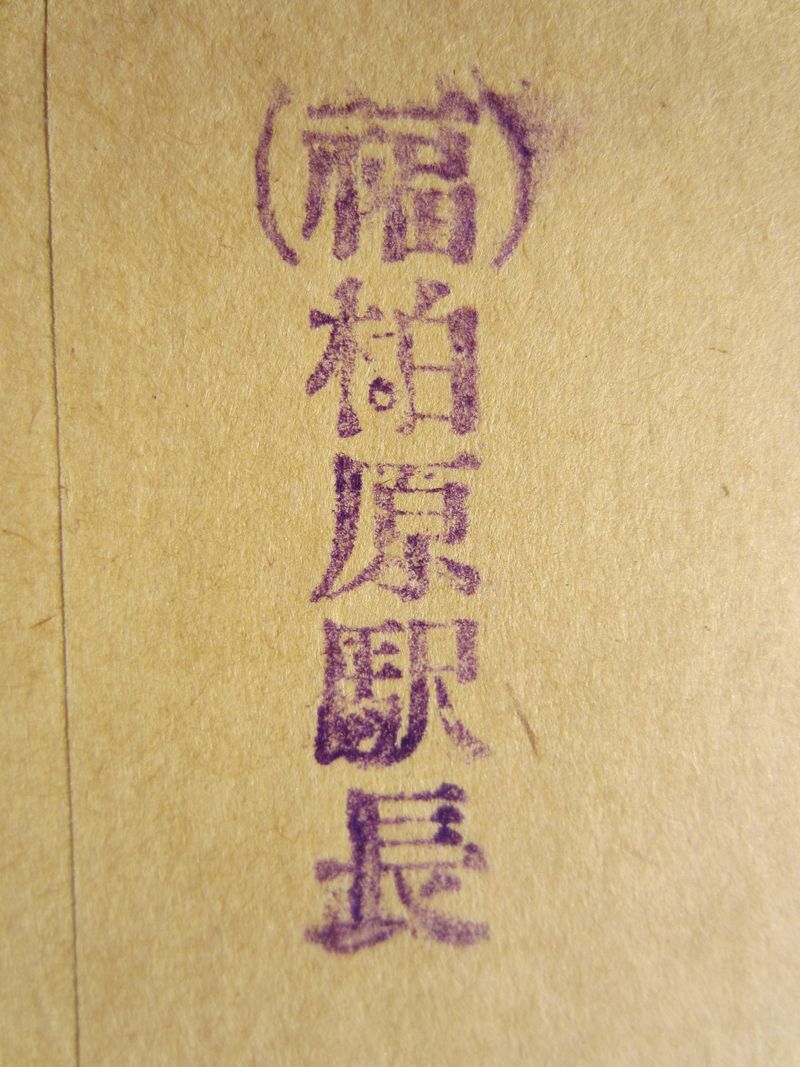 (福)柏原駅長